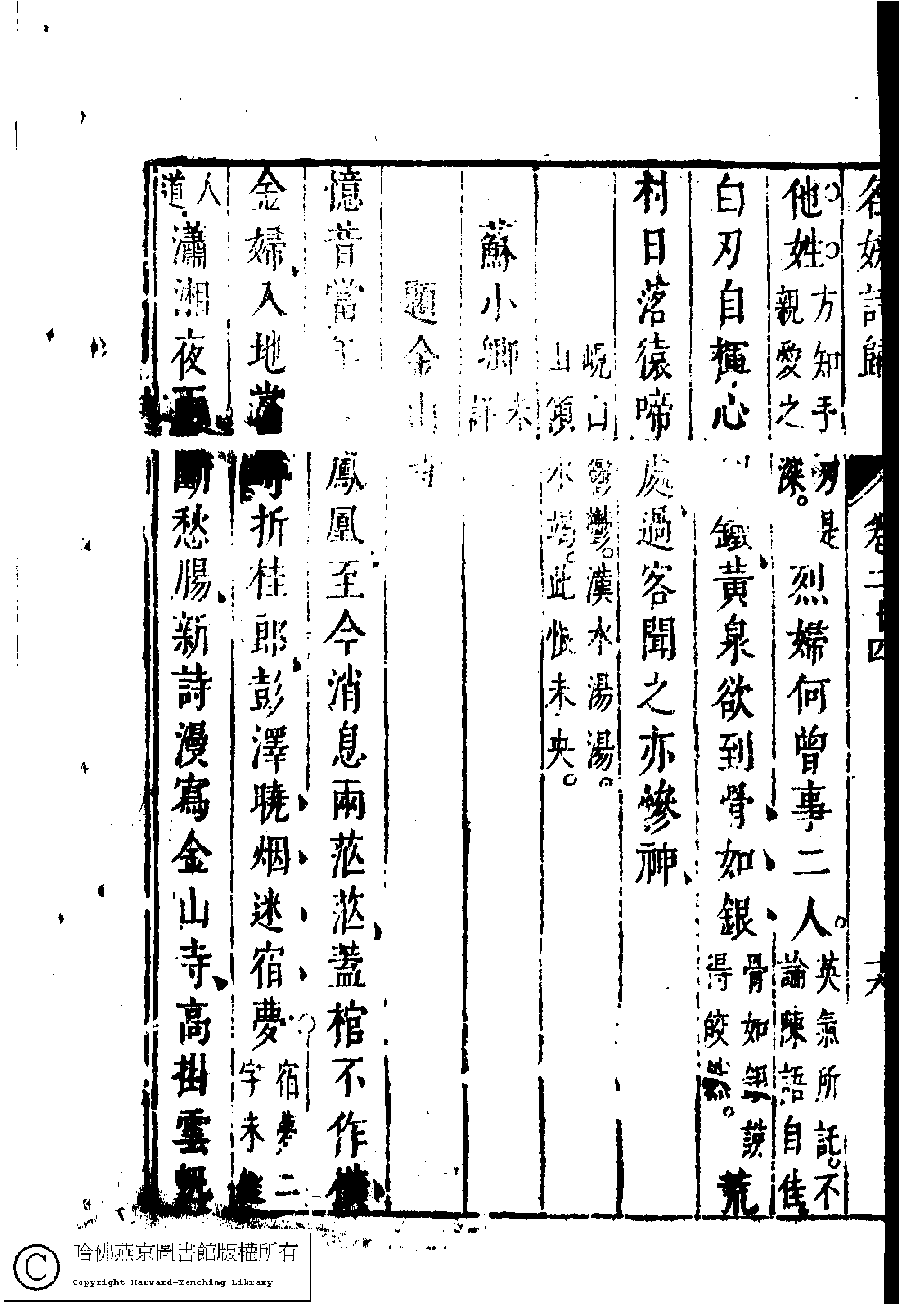 名媛詩歸 卷二十四 十六
他姓方知手刃是親愛之深。烈婦何曾事二人英氣所託。不論陳語自佳
白刃自揮心 鐵黃泉欲到骨如銀骨如銀談得皎 。荒
村日落猿啼處過客聞之亦慘神
峴山鬱鬱。漢水湯湯。山頹水竭。此恨未央。
蘇小卿未詳
題金山寺
憶昔當年 鳳凰至今消息兩茫茫蓋棺不作
金婦入地當尋折桂郎彭澤曉烟迷宿夢宿夢二字未
人道瀟湘夜雨斷愁腸新詩漫寫金山寺高掛雲
哈佛燕京圖書館版權所有
Copyright Harvard-Yenching Library